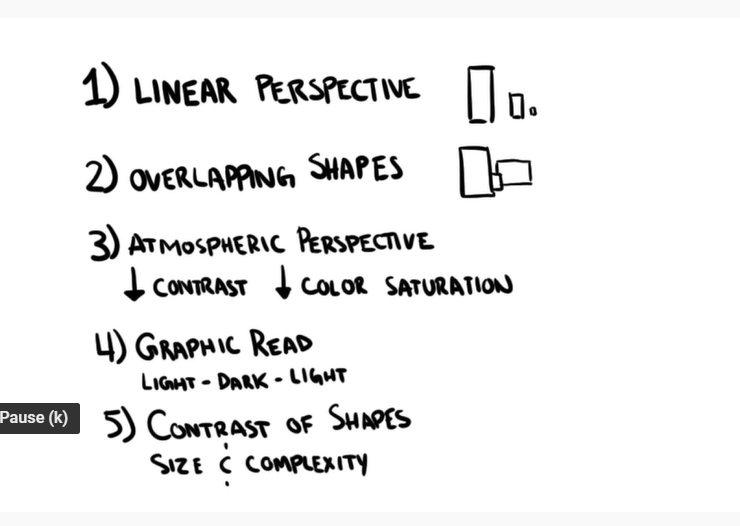 1) LINEAR PERSPECTIVE
2) OVERLAPPING SHAPES
3) ATMOSPHERIC PERSPECTIVE
↓ CONTRAST ↓ COLOR SATURATION
4) GRAPHIC READ
LIGHT - DARK - LIGHT
Pause (k)
5) CONTRAST OF SHAPES
SIZE & COMPLEXITY